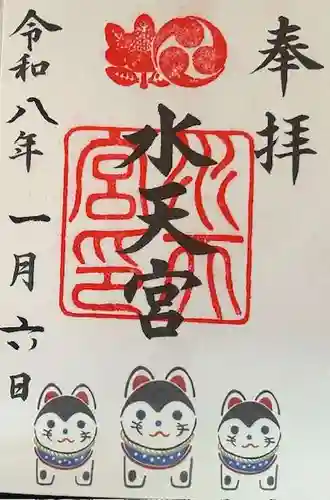 奉拝
水天宮
水天宮印
令和八年 一月 六日